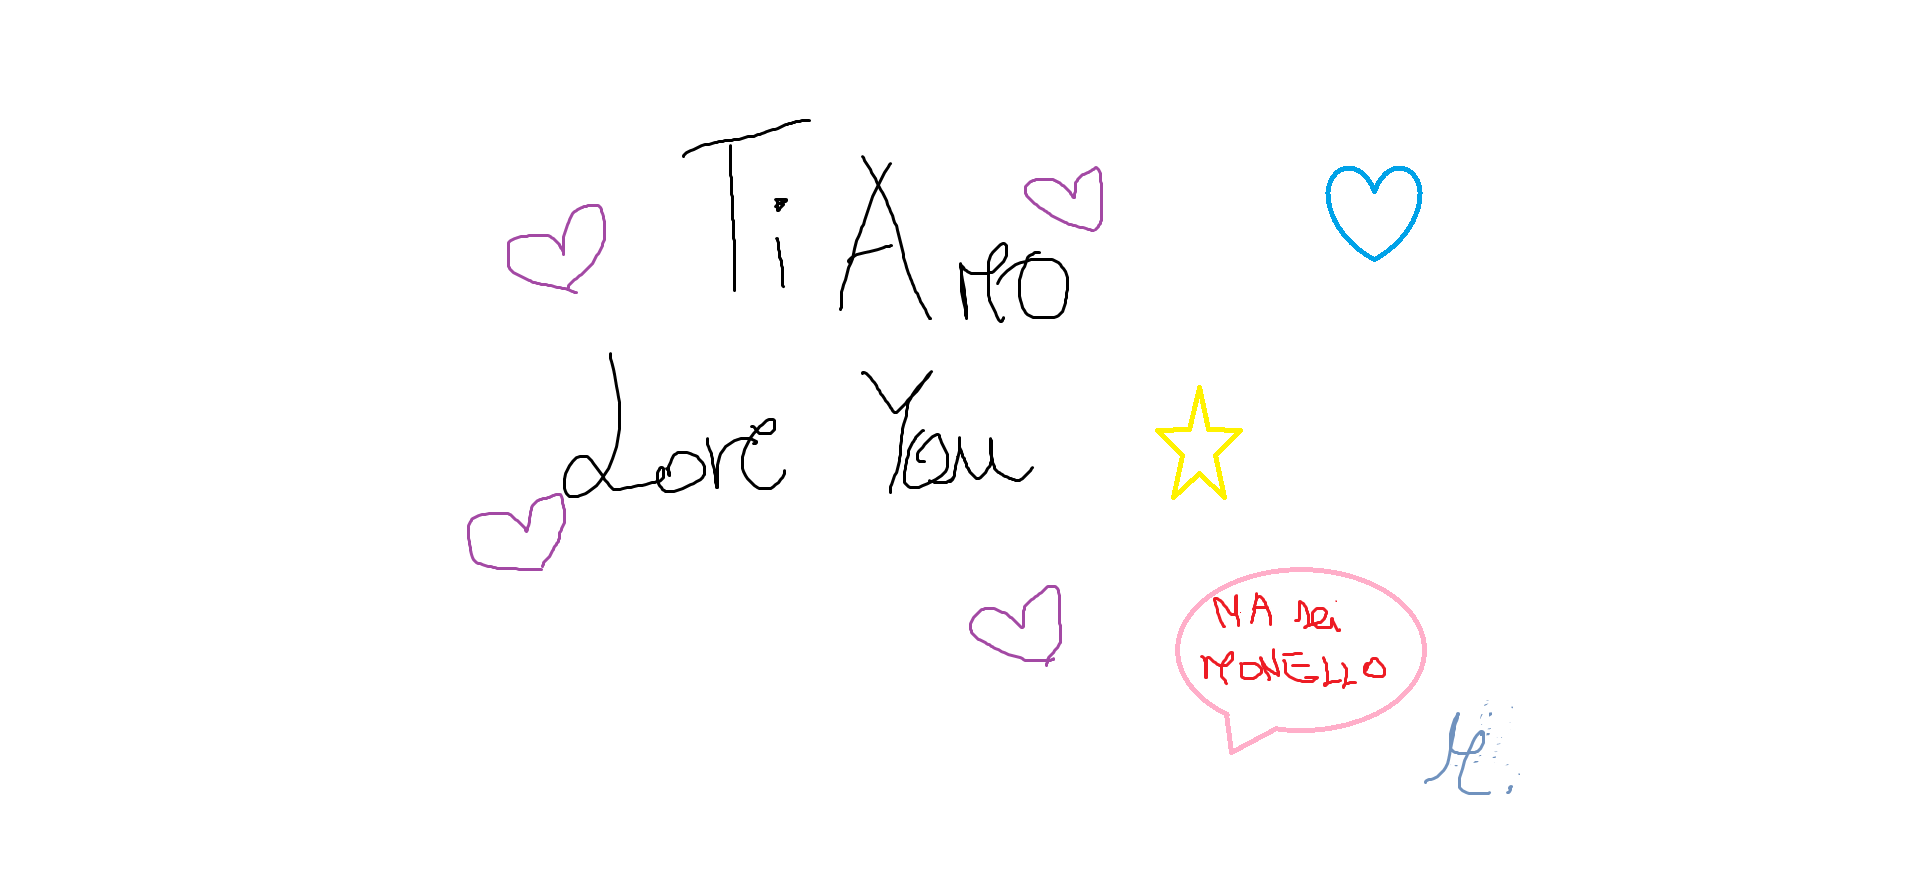 Ti Amo
Love You
MA sei
MONELLO
M.